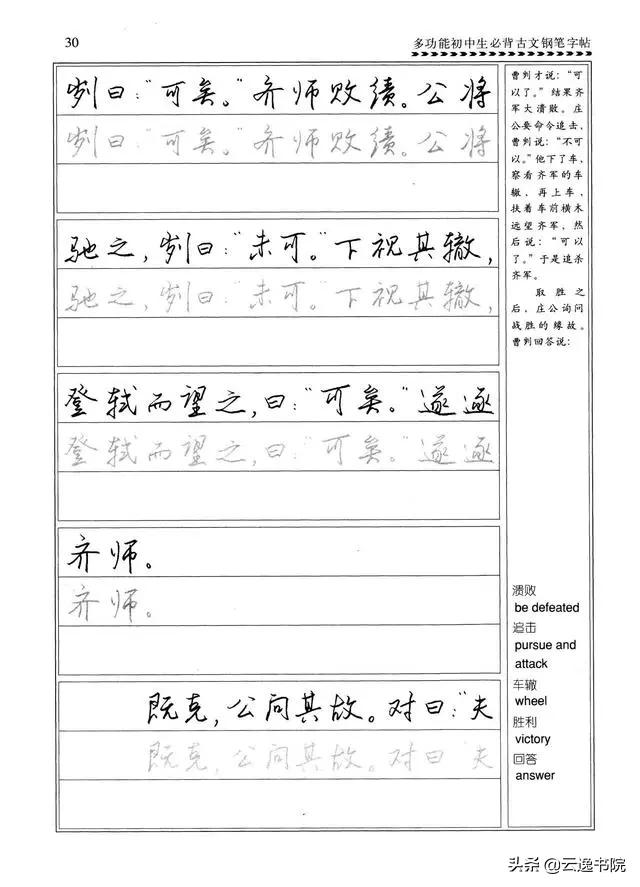 30
多功能初中生必背古文钢笔字帖
刿曰：“可矣。”齐师败绩。公将
刿曰：“可矣。”齐师败绩。公将
驰之，刿曰：“未可。”下视其辙，
驰之，刿曰：“未可。”下视其辙，
登轼而望之，曰：“可矣。”遂逐
登轼而望之，曰：“可矣。”遂逐
齐师。
齐师。
既克，公问其故。对曰：“夫
既克，公问其故。对曰“夫
曹刿才说：“可
以了。”结果齐
军大溃败。庄
公要命令追击，
曹刿说：“不可
以。”他下了车，
察看齐军的车
辙，再上车，
扶着车前横木
远望齐军，然
后说：“可以
了。”于是追杀
齐军。
取胜之
后，庄公询问
战胜的缘故。
曹刿回答说：
溃败
be defeated
追击
pursue and
attack
车辙
wheel
胜利
victory
回答
answer
头条 @云逸书院